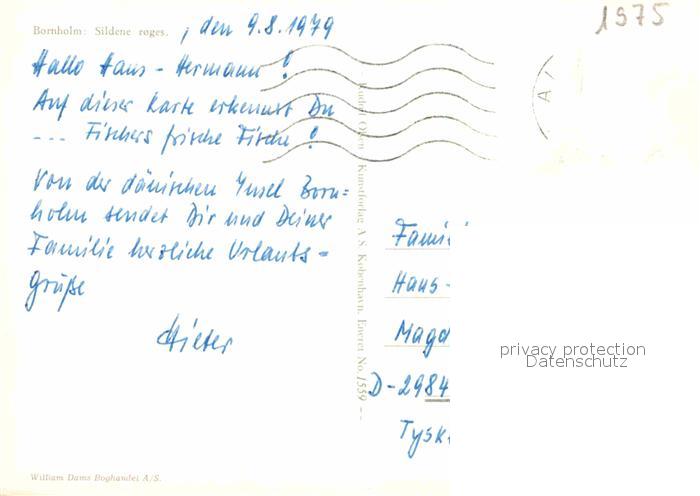 1975
Bornholm: Sildene røges. , den 9.8.1979
Hallo Hans-Hermann!
Auf dieser Karte erkennst Du
--- Fischers frische Fische!
Von der dänischen Insel Born=
holm sendet Dir und Deiner
Familie herzliche Urlaubs-
grüße
Dieter
Rudolf Olsen Kunstforlag A S. København. Eneret No. 1559
Fami
Hans-
Magd
D-2984
Tysk
privacy protection
Datenschutz
William Dams Boghandel A/S.
A